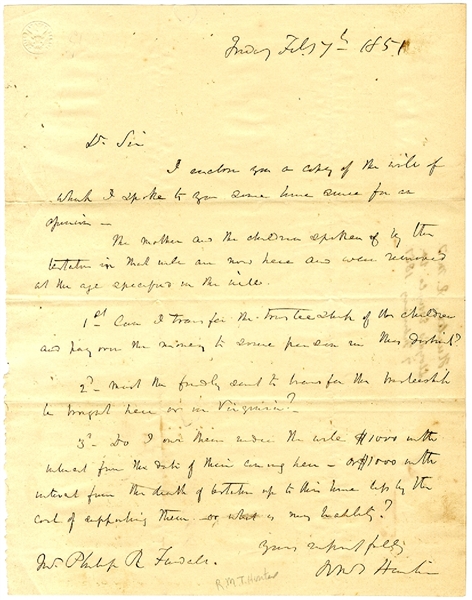 Friday Feb 7th 1851
Dr Sir
I enclose you a copy of the will of
which I spoke to you some time since for an
opinion —
The mother and the children spoken of by the
testator in that will are now here and were removed
at the age specified in the will.
1st Can I transfer the trusteeship of the children
and pay over the money to some person in this District?
2d Must the friendly suit to transfer the trusteeship
be brought here or in Virginia?
3d Do I owe them under the will $1000 with
interest from the date of their coming here — or $1000 with
interest from the death of testator up to this time less by the
cost of supporting them or what is my liability?
Yours respectfully
Mr Philip R Fendall
RMT Hunter
R M T Hunter